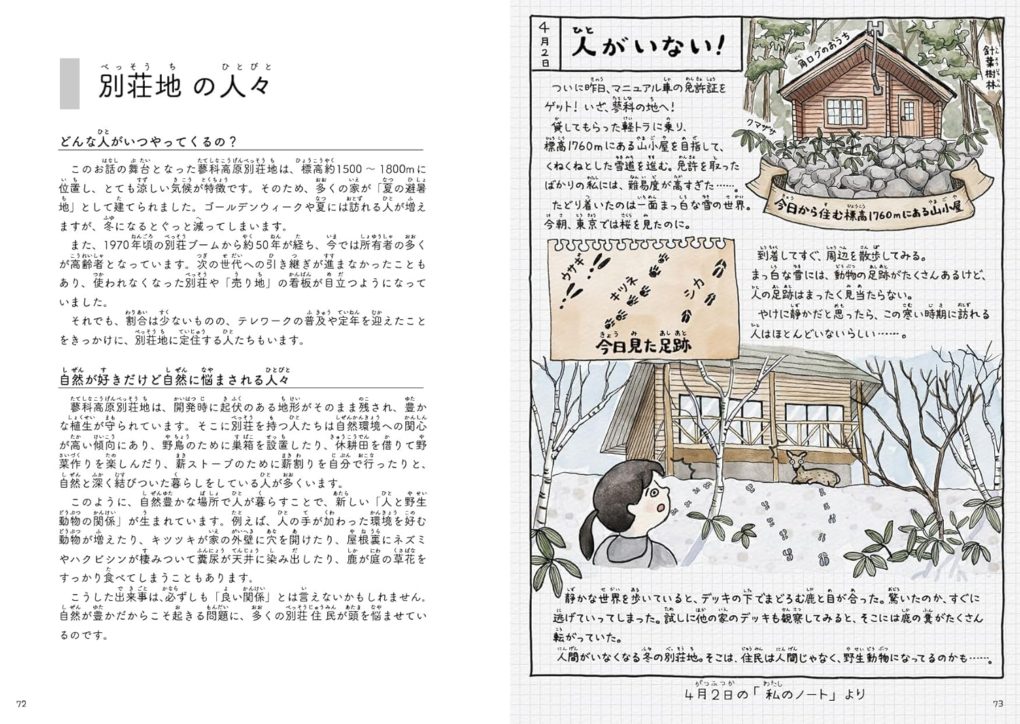 別荘地 の人々
どんな人がいつやってくるの？
このお話の舞台となった蓼科高原別荘地は、標高約1500 〜 1800mに
位置し、とても涼しい気候が特徴です。そのため、多くの家が「夏の避暑
地」として建てられました。ゴールデンウィークや夏には訪れる人が増え
ますが、冬になるとぐっと減ってしまいます。
また、1970年頃の別荘ブームから約50年が経ち、今では所有者の多く
が高齢者となっています。次の世代への引き継ぎが進まなかったことも
あり、使われなくなった別荘や「売り地」の看板が目立つようになって
いました。
それでも、割合は少ないものの、テレワークの普及や定年を迎えたこと
をきっかけに、別荘地に定住する人たちもいます。
自然が好きだけど自然に悩まされる人々
蓼科高原別荘地は、開発時に起伏のある地形がそのまま残され、豊か
な植生が守られています。そこに別荘を持つ人たちは自然環境への関心
が高い傾向にあり、野鳥のために巣箱を設置したり、休耕田を借りて野
菜作りを楽しんだり、薪ストーブのために薪割りを自分で行ったりと、
自然と深く結びついた暮らしをしている人が多くいます。
このように、自然豊かな場所で人が暮らすことで、新しい「人と野生
動物の関係」が生まれています。例えば、人の手が加わった環境を好む
動物が増えたり、キツツキが家の外壁に穴を開けたり、屋根裏にネズミ
やハクビシンが棲みついて糞尿が天井に染み出したり、鹿が庭の草花を
すっかり食べてしまうこともあります。
こうした出来事は、必ずしも「良い関係」とは言えないかもしれません。
自然が豊かだからこそ起きる問題に、多くの別荘住民が頭を悩ませてい
るのです。
72
4月2日
人がいない！
ついに昨日、マニュアル車の免許証を
ゲット！いざ、蓼科の地へ！
貸してもらった軽トラに乗り、
標高1760mにある山小屋を目指して、
くねくねとした雪道を進む。免許を取った
ばかりの私には、難易度が高すぎた……。
たどり着いたのは一面まっ白な雪の世界。
今朝、東京では桜を見たのに。
角ログのおうち
針葉樹林
クマザサ
今日から住む標高1760mにある山小屋
ウサギ
キツネ
シカ
今日見た足跡
到着してすぐ、周辺を散歩してみる。
まっ白な雪には、動物の足跡がたくさんあるけど、
人の足跡はまったく見当たらない。
やけに静かだと思ったら、この寒い時期に訪れる
人はほとんどいないらしい……。
静かな世界を歩いていると、デッキの下でまどろむ鹿と目が合った。驚いたのか、すぐに
逃げていってしまった。試しに他の家のデッキも観察してみると、そこには鹿の糞がたくさん
転がっていた。
人間がいなくなる冬の別荘地。そこは、住民は人間じゃなく、野生動物になってるのかも……。
4月2日の「私のノート」より
73